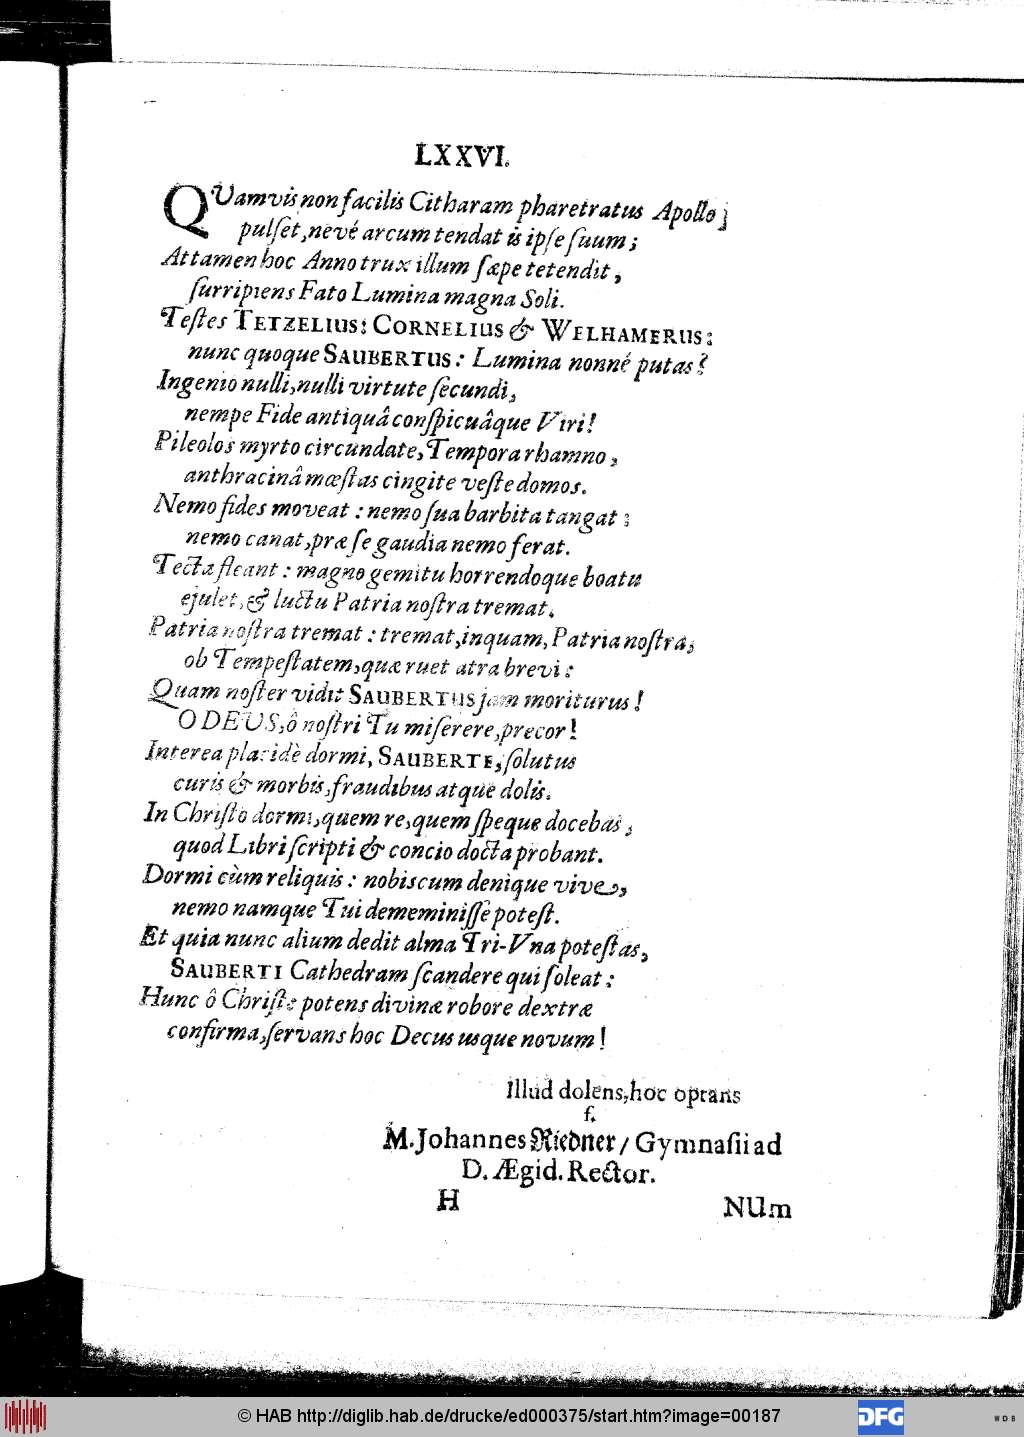 LXXVI.
QUamvis non facilis Citharam pharetratus Apollo
pulſet, nevé arcum tendat is ipſe ſuum;
Attamen hoc Anno trux illum ſæpe tetendit,
ſurripiens Fato Lumina magna Soli.
Teſtes TETZELIUS: CORNELIUS & WELHAMERUS:
nunc quoque SAUBERTUS: Lumina nonné putas?
Ingenio nulli, nulli virtute ſecundi,
nempe Fide antiquâ conſpicuâque Viri!
Pileolos myrto circundate, Tempora rhamno,
anthracinâ mœſtas cingite veſte domos.
Nemo fides moveat: nemo ſua barbita tangat:
nemo canat, præ ſe gaudia nemo ferat.
Tecta fleant: magno gemitu horrendoque boatu
ejulet, & luctu Patria noſtra tremat.
Patria noſtra tremat: tremat, inquam, Patria noſtra,
ob Tempeſtatem, quæ ruet atra brevi:
Quam noſter vidit SAUBERTUS jam moriturus!
O DEUS, ô noſtri Tu miſerere, precor!
Interea placidè dormi, SAUBERTE, ſolutus
curis & morbis, fraudibus atque dolis.
In Chriſto dormi, quem re, quem ſpeque docebas,
quod Libri ſcripti & concio docta probant.
Dormi cùm reliquis: nobiscum denique vive,
nemo namque Tui dememiniſſe poteſt.
Et quia nunc alium dedit alma Tri-Vna poteſtas,
SAUBERTI Cathedram ſcandere qui ſoleat:
Hunc ô Chriſte potens divinæ robore dextræ
confirma, ſervans hoc Decus usque novum!
Illud dolens, hoc optans
f.
M. Johannes Riedner / Gymnaſii ad
D. Ægid. Rector.
H NUm
© HAB http://diglib.hab.de/drucke/ed000375/start.htm?image=00187
DFG
WDB